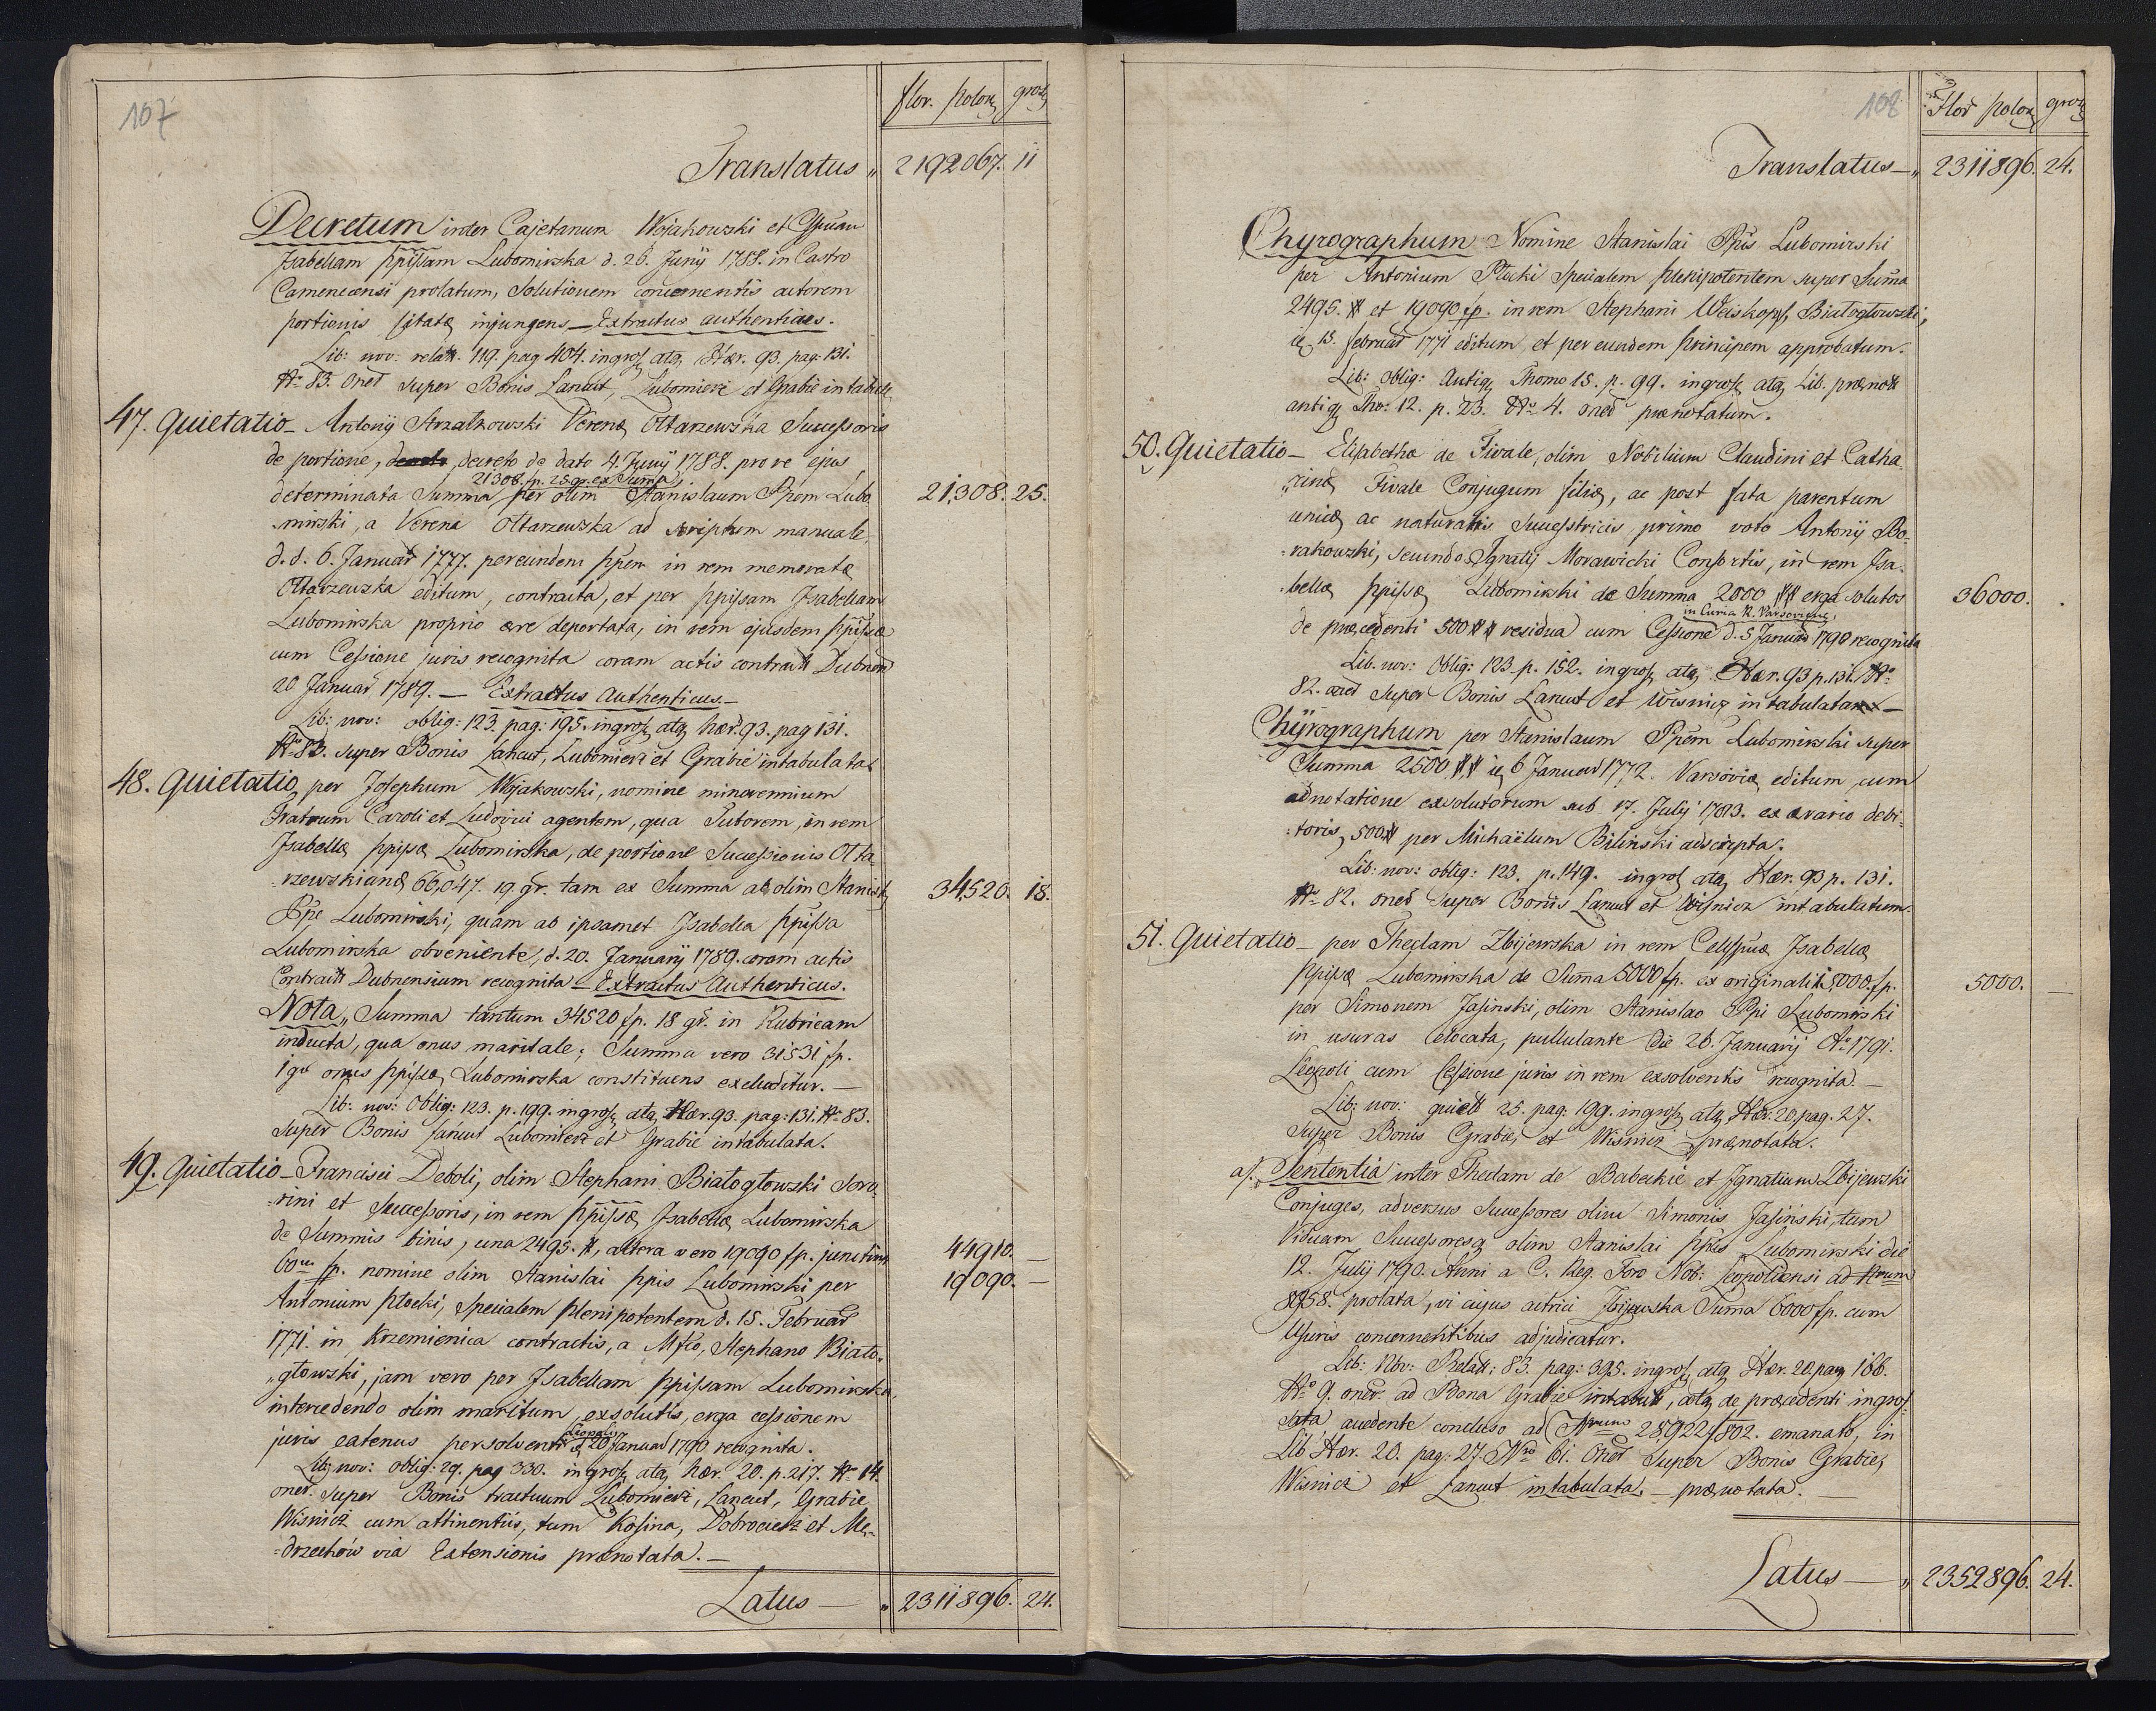 107
flor. polon. groz
Translatus „ 2192067. 11
Decretum inter Cajetanum Wojakowski et Csmam
Isabellam ppissam Lubomirska d. 26. Junij 1788. in Castro
Camenecensi prolatum, Solutionem concernentis actorem
portionis citatæ injungens — Extractus authenticus.
Lib: nov: relatt. 119. pag 404. ingross atq Hær. 93. pag: 131.
Nº 83. Oner super Bonis Lancut, Lubomierz et Grabie intabult
47. Quietatio — Antonij Strzalkowski Verenæ Ottarzewska Successoris
de portione, decreto de dato 4. Junij 1788. pro re ejus
21308. fp. 25 gr. ex Suma
determinata Summa per olim Stanislaum Ppem Lubo 21,308. 25.
mirski, a Verena Ottarzewska ad scriptum manuale,
d. d. 6. Januar 1777. per eundem ppem in rem memoratæ
Ottarzewska editum, contracta, et per ppissam Isabellam
Lubomirska proprio ære deportata, in rem ejusdem ppissæ
cum Cessione juris recognita coram actis contractt Dubnen
20 Januar 1789. — Extractus Authenticus. —
Lib: nov: oblig: 123. pag: 195. ingross atq hær. 93. pag 131.
Nº 83. super Bonis Lancut, Lubomierz et Grabie intabulata.
48. Quietatio per Josephum Wojakowski, nomine minorennium
Fratrum Caroli et Ludovici agentem, qua Tutorem, in rem
Isabellæ ppissæ Lubomirska, de portione Successionis Otta
rzewskianæ 66,047. 19. gr. tam ex Summa ab olim Stanisl 34,520. 18.
Ppe Lubomirski, quam ab ipsamet Isabella ppissa
Lubomirska obveniente, d. 20. Januarij 1789. coram actis
Contractt Dubnensium recognita — Extractus Authenticus.
Nota„ Summa tantum 34520 fp. 18 gr. in Rubricam
inducta, qua onus maritale; Summa vero 31531 fp.
1 gr onus ppissæ Lubomirska constituens excluditur. —
Lib: nov: Oblig: 123. p. 199. ingross atq Hær. 93. pag: 131. Nº 83.
super Bonis Lancut Lubomierz et Grabie intabulata.
49. Quietatio — Francisci Deboli, olim Stephani Bialoglowski Soro
rini et Successoris, in rem ppissæ Isabellæ Lubomirska
de Summis binis, una 2495. #, altera vero 19090 fp. junctim 44910. —
fp. nomine olim Stanislai ppis Lubomirski per 19090. —
Antonium Plocki, specialem plenipotentem d. 15. Februar
1771. in Krzemienica contractis, a Mfco, Stephano Bialo„
„glowski, jam vero per Isabellam ppissam Lubomirska,
intercedendo olim maritum, exsolutis, erga cessionem
Leopolis
juris eatenus persolventi d. 20 Januar 1790. recognita.
Lib; nov: oblig: 29. pag 330. ingross atq hær. 20. p. 217. Nº 14.
oner. super Bonis tractuum Lubomierz, Lancut, Grabie
Wisnicz cum attinentiis, tum Kosina, Dobrocierz et Me
drzechow via Extensionis prænotata. —
Latus — „ 2311896. 24.
108
Flor polon groz
Translatus — „ 2311896. 24.
Chyrographum Nomine Stanislai Ppis Lubomirski
per Antonium Plocki Specialem plenipotentem super Suma
2495. # et 19090 fp. in rem Stephani Weiskopf, Bialoglowski,
13. februar 1771 editum, et per eundem principem approbatum.
Lib: Oblig: Antiq Thomo 15. p. 99. ingross atq Lib. prænott
antiq Tho: 12. p. 23. Nº 4. oner prænotatum.
50. Quietatio — Elisabethæ de Fivale, olim Nobilium Claudini et Catha
rinæ Fivale Conjugum filiæ, ac post fata parentum
unicæ ac naturalis Successtricis, primo voto Antonij Bo
rakowski, secundo Ignatij Morawicki Consortis, in rem Isa
bellæ ppissæ Lubomirski de Summa 2000 ## erga solutos 36000.
in Curia R. Varsoviens
de præcedenti 500 ## residua cum Cessione d. 5 Januar 1790 recognita
Lib. nov: Oblig: 123. p. 152. ingross atq Hær. 93 p. 131. Nº
82. oner super Bonis Lancut et Wisnicz intabulata —
Chyrographum per Stanislaum Ppem Lubomirski super
Summa 2500 ## 6 Januar 1772. Varsoviæ editum, cum
adnotatione exsolutorum sub 17. Julij 1783. ex ærario debi
toris, 500 # per Michaëlum Bilinski adscripta.
Lib: nov: oblig: 123. p. 149. ingross atq Hær. 93 p. 131.
Nº 82. oner super Bonis Lancut et Wisnicz intabulatum.
51. Quietatio — per Theclam Zbijewska in rem Celssmæ Isabellæ
ppissæ Lubomirska de Suma 5000 fp. ex originali 15,000. fp. 5000. —
per Simonem Jasinski, olim Stanislao Ppi Lubomirski
in usuras elocata, pullulante die 26. Januarij Aº 1791.
Leopoli cum Cessione juris in rem exsolventis recognita. —
Lib: nov: quiett 25. pag: 199. ingross atq Hær. 20. pag. 27.
super Bonis Grabie, et Wisnicz prænotata.
a). Sententia inter Theclam de Babeckie et Ignatium Zbijewski
Conjuges, adversus Successores olim Simonis Jasinski, tum
Viduam Successoresq olim Stanislai ppis Lubomirski die
12. Julij 1790. Anni a C. Reg. Foro Nob: Leopoliensi ad Nrum
8958. prolata, vi cujus actrici Zbijewska Suma 6000 fp. cum
Usuris concernentibus adjudicatur.
Lib: Nov: Relatt: 83. pag: 395. ingross atq Hær. 20. pag 166.
Nº 9. oner. ad Bona Grabie intabult, atq de præcedenti ingros
sata, accedente concluso ad Nrum 28,922/802. emanato, in
Lib Hær. 20. pag: 27. Nro 61. Oner super Bonis Grabie,
Wisnicz et Lancut intabulata. — prænotata. —
Latus — „ 2352896. 24.